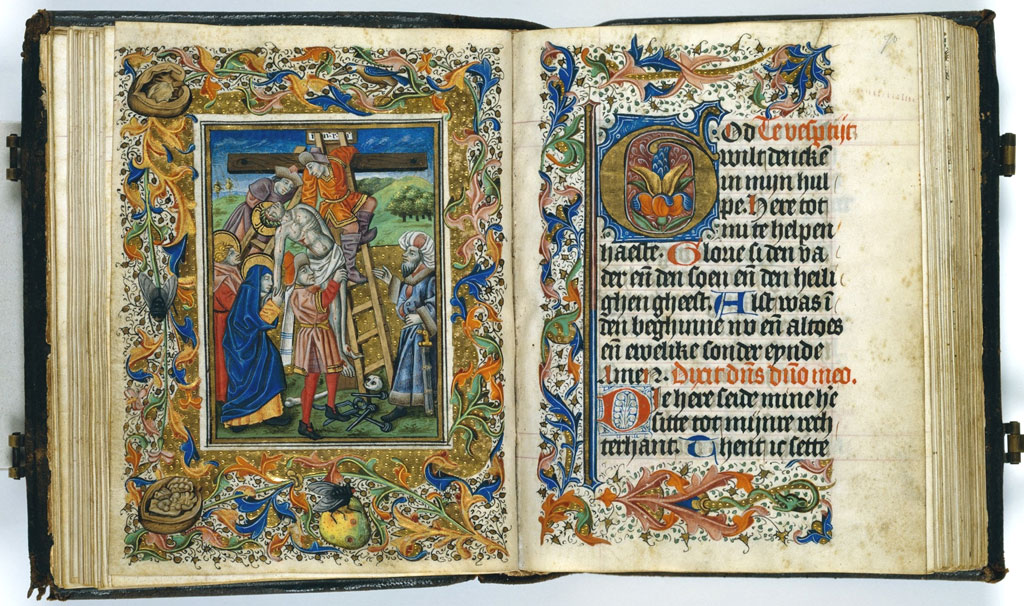 I N R I
God Te vesptijt
wilt denckē
in mijn hul
pe. Here tot
mi te helpen
haeste. Glorie si den va
der eñ den soen eñ den heili
ghen gheest. Alst was ī
den beghinne nv eñ altoes
eñ ewelike sonder eynde
Amen. Dixit dñs dño meo.
Die here seide mine he
sitte tot mijnre rech
terhant. Thent ic sette